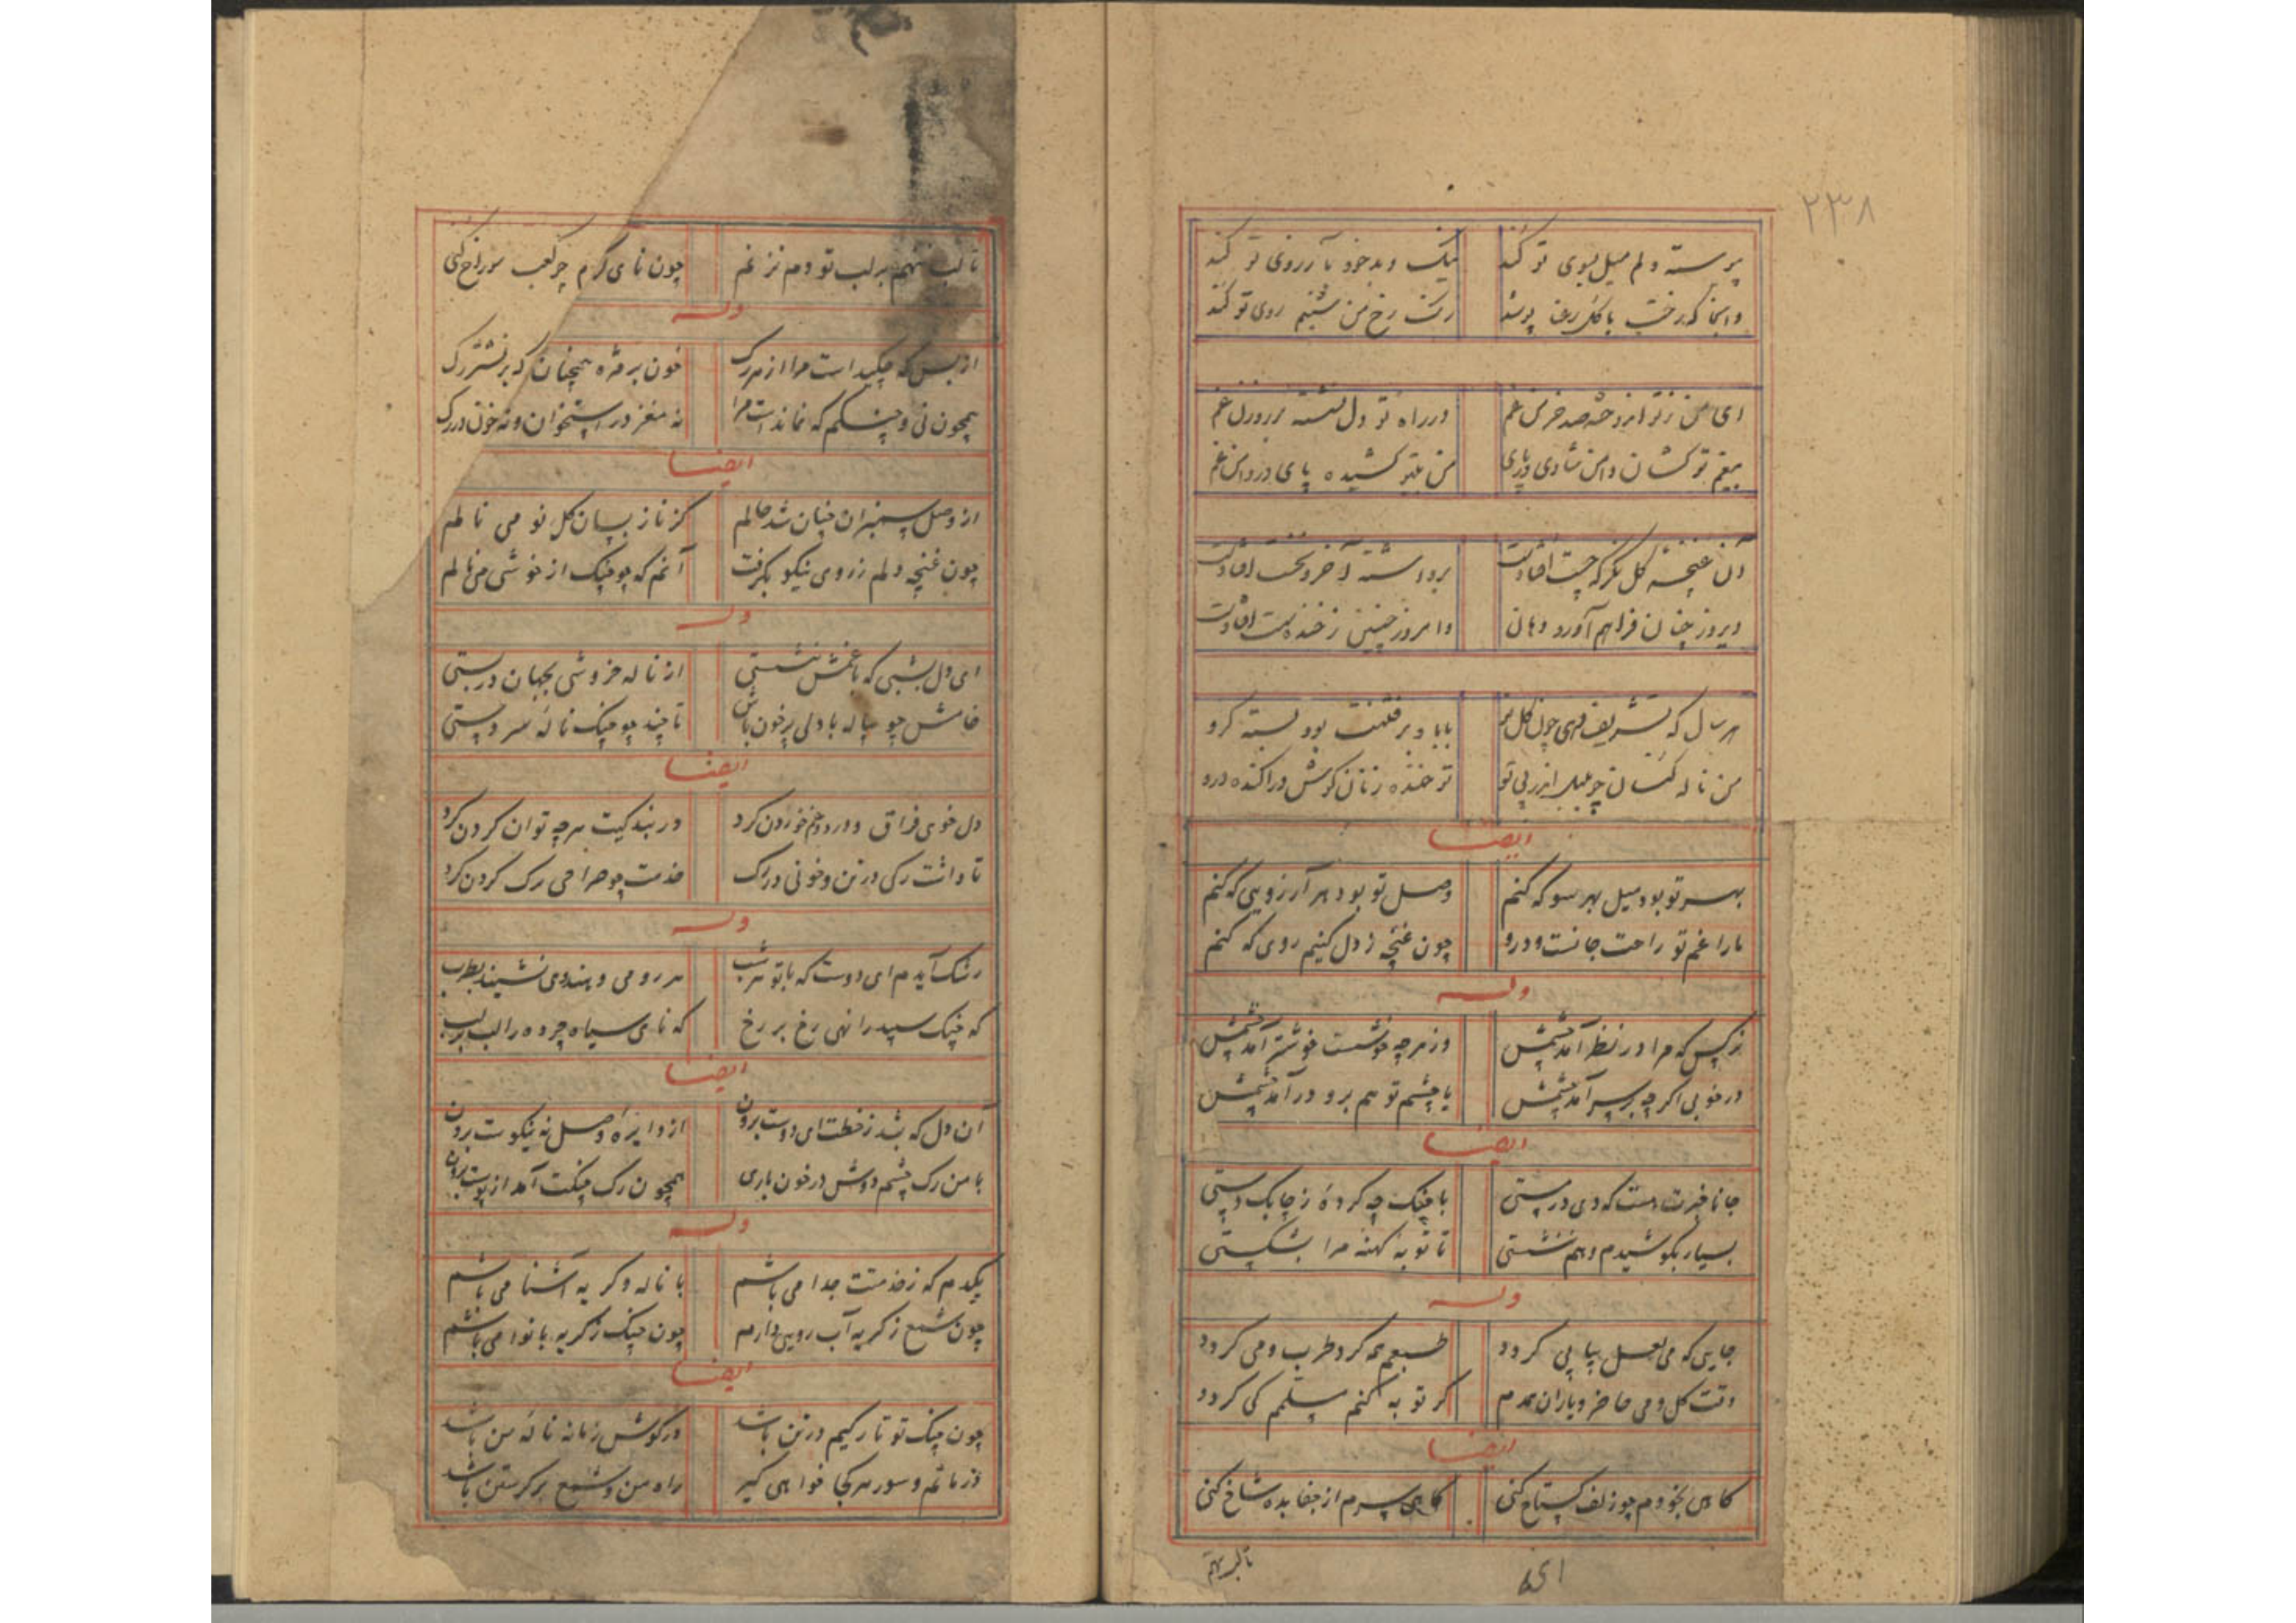 ۲۳۸
پیوسته دلم میل بسوی تو کند نیک و بد خود بآرزوی تو کند
وانجا که رخت با کل رعنا رنک رخ من شبنم روی تو کند
ای من ز تو اندوخته صد خرمن غم در راه تو دل نشسته بر روزن غم
بیغم تو کشان دامن شادی در پای من کشیده پای در دامن غم
آن غنچه کل نکر که چست افتادست برداشته و آخر و نخست افتادست
دیروز چنان فراهم آورد دهان وامروز چنین ز خنده سست افتادست
هر سال که تشریف دهی چون کل نو بابا دبر فتنت بود بسته کرو
من ناله کنان چو بلبل اندر پی تو تو خنده زنان کوش دراکنده درو
ایضا
بهر تو بود میل بهر سو که کنم وصل تو بود هر آرزویی که کنم
ما را غم تو راحت جانست و درو چون غنچه ز دل کنیم روی که کنم
وله
نرکس که مرا در نظر آمد چشمش وز هرچه خوشست خوشتر آمد چشمش
در خوبی اکرچه بر سر آمد چشمش با چشم تو هم برو درآمد چشمش
ایضا
جانا خبرت هست که دی در مستی با چنک چه کرده ز چابک دستی
بسیار بکوشیدم و هم ننشستی تا توبه کهنه مرا بشکستی
وله
جایی که می لعل پیاپی کردد طبعم همه کرد طرب و می کردد
وقت کل و می حاضر و یاران همدم کر توبه کنم مسلمم کی کردد
ایضا
کاهی بخودم چو زلف کستاخ کنی کاهی سرم از جفا بده شاخ کنی
تا لب نهم
تا لب ننهم بر لب تو دم نزنم چون نای کرم چو کعب سوراخ کنی
وله
از بس که چکیدست مرا از هر رک خون بر مژه همچنان که بر نشتر رک
همچون نی و چنکم که نماندست مرا نه مغز در استخوان و نه خون در رک
ایضا
از وصل سمنبران چنان شد حالم کز ناز بسان کل نو می نالم
چون غنچه دلم ز روی نیکو بکرفت آنم که چو چنک از خوشی می نالم
وله
ای دل بشبی که با غمش ننشستی از ناله خروشی بجهان در بستی
خامش چو پیاله با دلی پرخون باش تا چند چو چنک ناله سر دستی
ایضا
دل خوی فراق و درد و غم خوردن کرد در بندکیت هرچه توان کردن کرد
تا داشت رکی در تن و خونی در رک خدمت چو صراحی رک کردن کرد
وله
رشک آیدم ای دوست که با تو هر شب هر رومی و هندوی نشیند بطرب
که چنک سپید را نهی رخ بر رخ که نای سیاه چرده را لب بر لب
ایضا
آن دل که بشد ز خطت ای دوست برون از دایره وصل نه نیکوست برون
با من رک چشم دوش در خون باری همچون رک چنکت آمد از پوست برون
وله
یکدم که ز خدمتت جدا می باشم با ناله و کریه آشنا می باشم
چون شمع ز کریه آب رویی دارم چون چنک ز کریه با نوا می باشم
ایضا
چون چنک تو تا رکیم در تن باشد در کوش زمانه ناله من باشد
در ماتم و سور هر کجا خواهی کیر راه من و شمع بر کرستن باشد